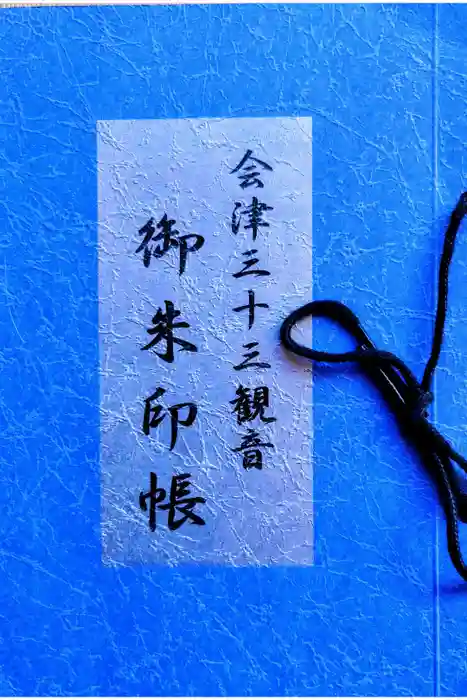 会津三十三観音
御朱印帳